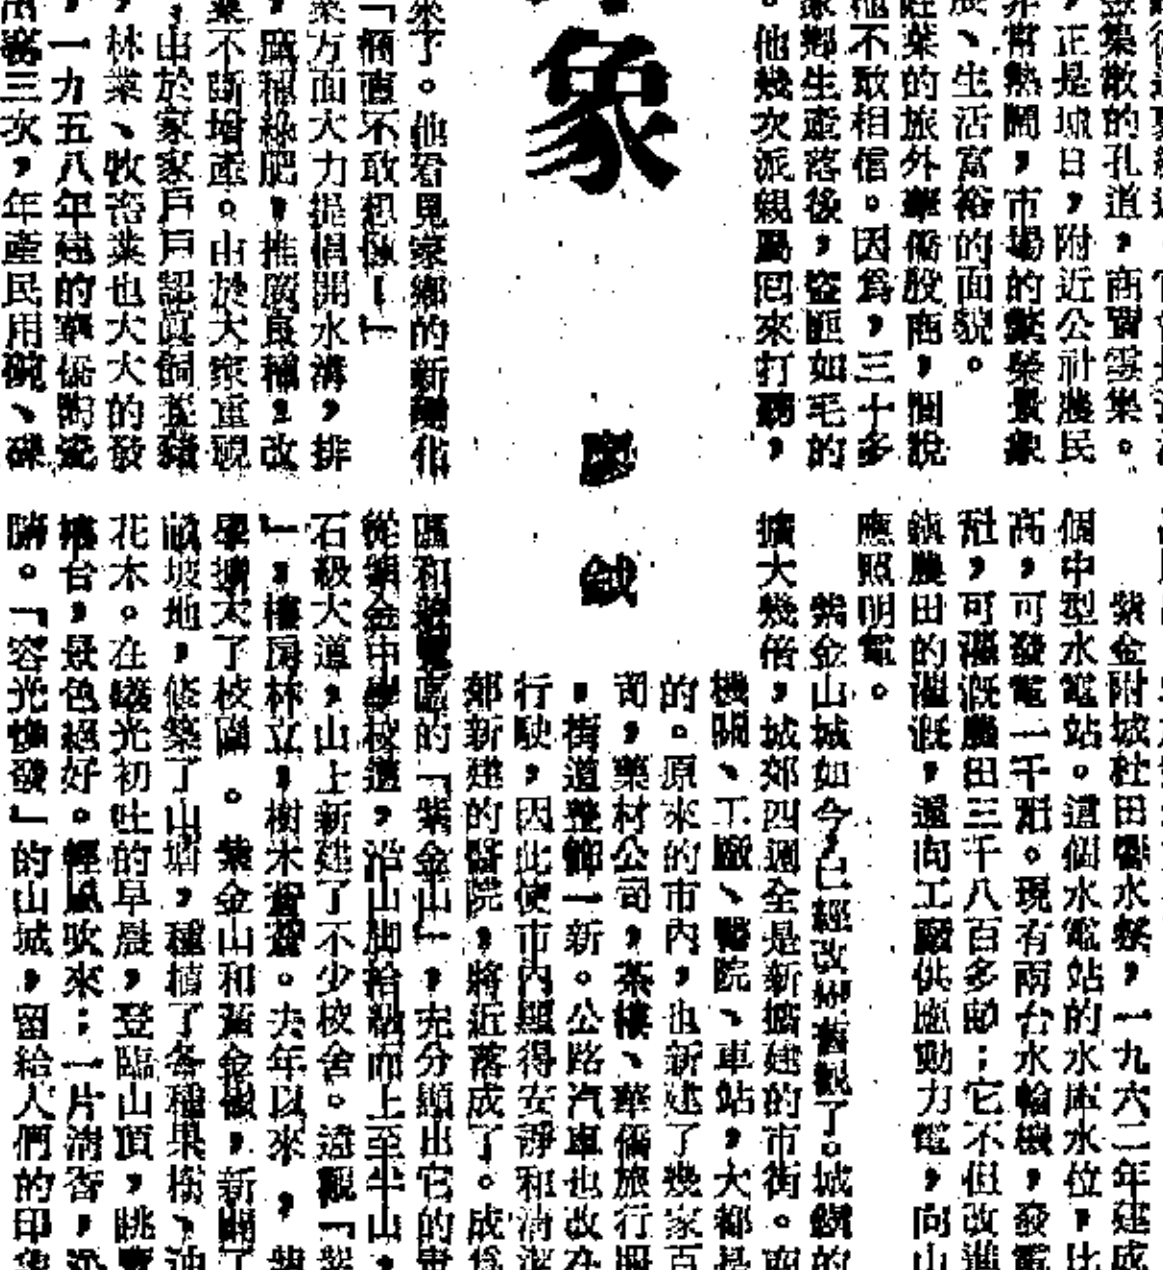 集散的孔道，商賈雲集。
，正是墟日，附近公社農民
非常熱鬧，市場的繁榮景象
展、生活富裕的面貌。
葉的旅外華僑殷商，個說
他不敢相信。因爲，三十多
家鄉生產落後，盜匪如毛的
。他幾次派親屬回來打聽，
象
廖鉞
來了。他看見家鄉的新變化
「簡直不敢想像！」
業方面大力提倡開水溝，排
，廣種綠肥，推廣良種，改
業不斷增產。由於大家重視
，由於家家戶戶認真飼養豬
，林業、牧畜業也大大的發
，一九五八年建的華僑陶瓷
窰三次，年產民用碗、碟
紫金附城杜田響水，一九六二年建成
個中型水電站。這個水電站的水庫水位，比
高，可發電一千瓩。現有兩台水輪機，發電
瓩，可灌溉農田三千八百多畝；它不但改進
鎮農田的灌溉，還向工廠供應動力電，向山
應照明電。
紫金山城如今，已經改變舊觀了。城鎮的
擴大幾倍，城郊四週全是新擴建的市街。商
機關、工廠、醫院、車站，大都是
的。原來的市內，也新建了幾家百
司，藥材公司，茶樓、華僑旅行服
，街道整飾一新。公路汽車也改在
行駛，因此使市內顯得安靜和清潔
郊新建的醫院，將近落成了。成爲
區和遊覽區的「紫金山」，充分顯出它的
從紫金中學校道，沿山脚拾級而上至半山，
石級大道，山上新建了不少校舍。遠觀「紫
」，樓房林立，樹木蒼蒼。去年以來，紫
學擴大了校園。紫金山和黃金嶺，新開了
畝坡地，修築了山塘，種植了各種果樹、油
花木。在曦光初吐的早晨，登臨山頂，眺覽
樓台，景色絕好。輕風吹來：一片清香，沁
脾。「容光煥發」的山城，留給人們的印象